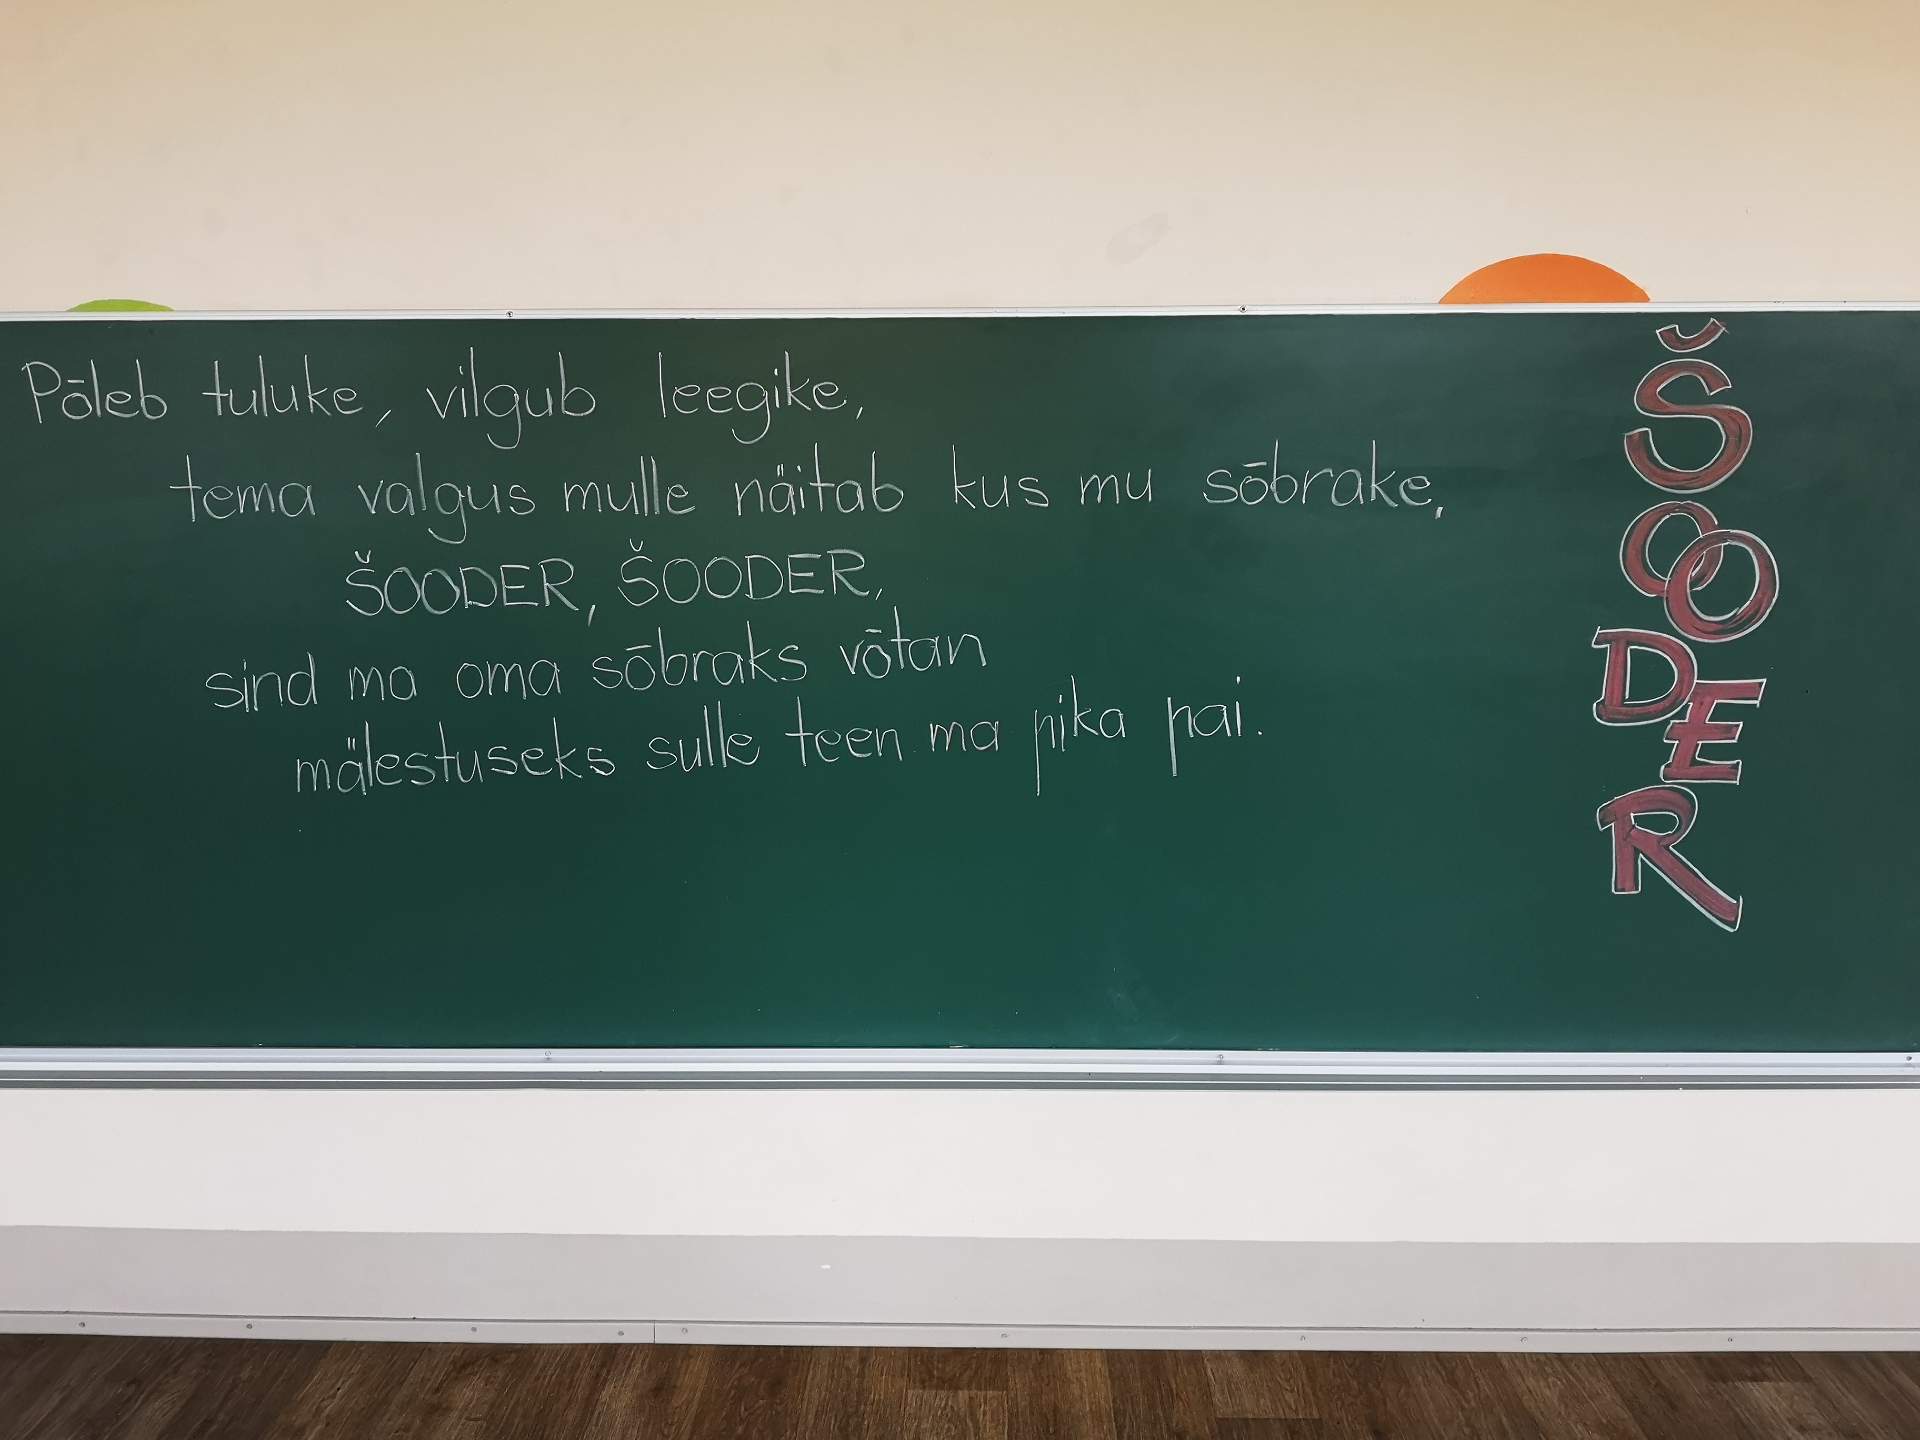 Põleb tuluke, vilgub leegike,
tema valgus mulle näitab kus mu sõbrake,
ŠOODER, ŠOODER,
sind ma oma sõbraks võtan
mälestuseks sulle teen ma pika pai.
ŠOODER